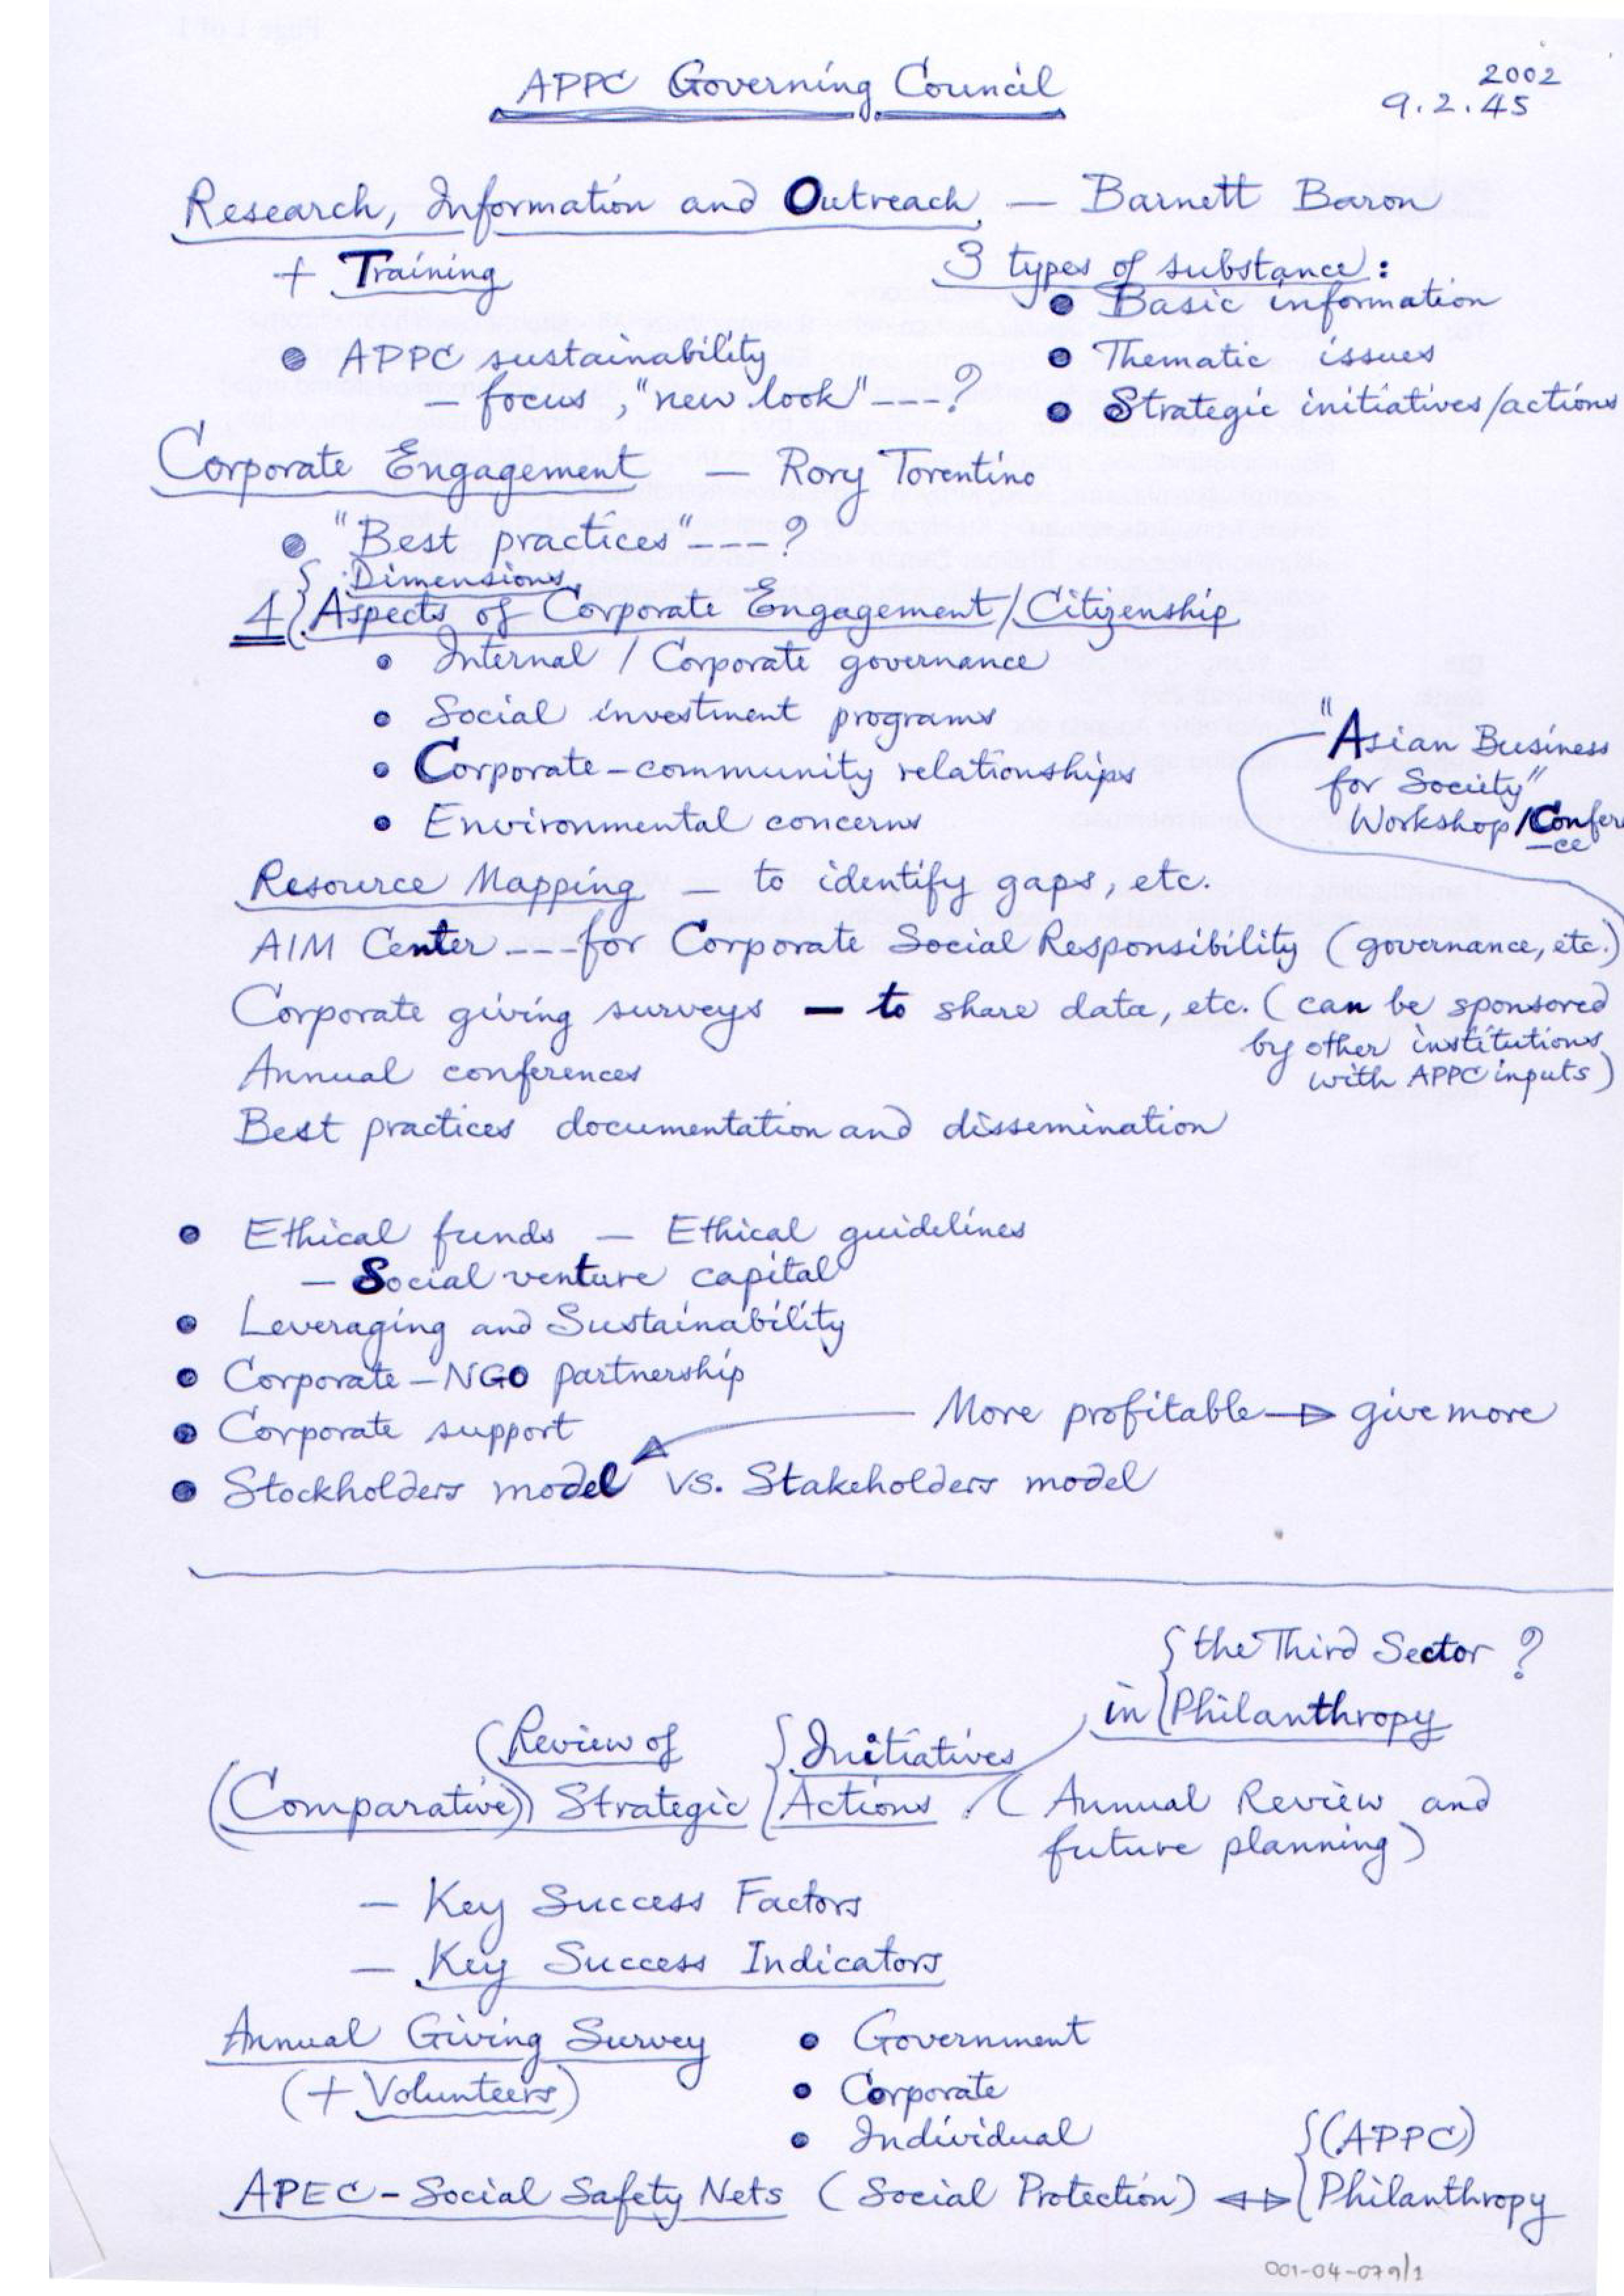 APPC Governing Council
2002
9.2.45
Research, Information and Outreach — Barnett Baron
+ Training
3 types of substance:
• Basic information
• APPC sustainability
• Thematic issues
— focus, "new look" ---?
• Strategic initiatives/actions
Corporate Engagement — Rory Torentino
• "Best practices" ---?
Dimensions
4 { Aspects of Corporate Engagement/Citizenship
• Internal / Corporate governance
• Social investment programs
• Corporate-community relationships
• Environmental concerns
"Asian Business
for Society"
Workshop/Confer
-ce
Resource Mapping — to identify gaps, etc.
AIM Center --- for Corporate Social Responsibility (governance, etc.)
Corporate giving surveys — to share data, etc. (can be sponsored
by other institutions
with APPC inputs)
Annual conferences
Best practices documentation and dissemination
• Ethical funds — Ethical guidelines
— Social venture capital
• Leveraging and Sustainability
• Corporate-NGO partnership
• Corporate support
More profitable → give more
• Stockholders model vs. Stakeholders model
{ the Third Sector ?
in { Philanthropy
(Review of { Initiatives
(Comparative)) Strategic { Actions . (Annual Review and
future planning)
— Key Success Factors
— Key Success Indicators
Annual Giving Survey
(+ Volunteers)
• Government
• Corporate
• Individual
{ (APPC)
APEC-Social Safety Nets (Social Protection) ↔ { Philanthropy
001-04-079/1